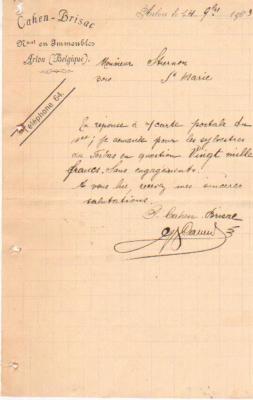 Cahen-Brisac
Nᵗ en Immeubles
Arlon (Belgique).
Téléphone 64.
Arlon le 24 9bre 1903
Monsieur
Ste Marie
En réponse à v/carte postale du
je demande pour les
du en question Vingt mille
francs, sans engagements.
recevez mes sincères
salutations.
Cahen Brisac